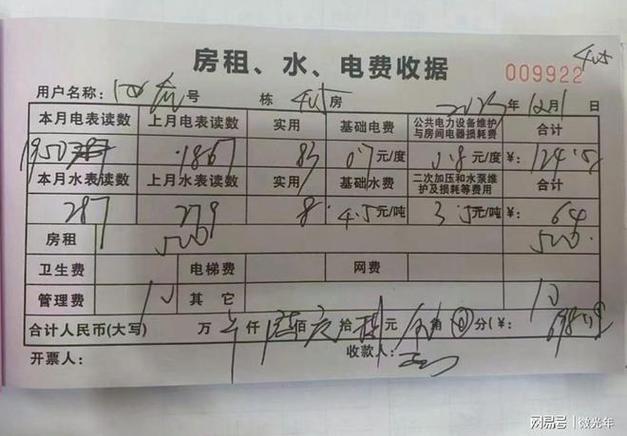 房租、水、电费收据
009922
405
用户名称: 号 栋 405 房 2023 年 12月1 日
本月电表读数 上月电表读数 实用 基础电费 公共电力设备维护与房间电器损耗费 合计
1950 1867 83 0.7 元/度 0.8 元/度 ¥: 124.5
本月水表读数 上月水表读数 实用 基础水费 二次加压和水泵维护及损耗等费用 合计
287 279 8 4.5 元/吨 3.5 元/吨 ¥: 64
房租 500 500
卫生费 电梯费 网费
管理费 10 其它 10
合计人民币(大写) 万 仟 陆 佰 拾 元 角 分(¥:
开票人: 收款人:
网易号 | 微光年